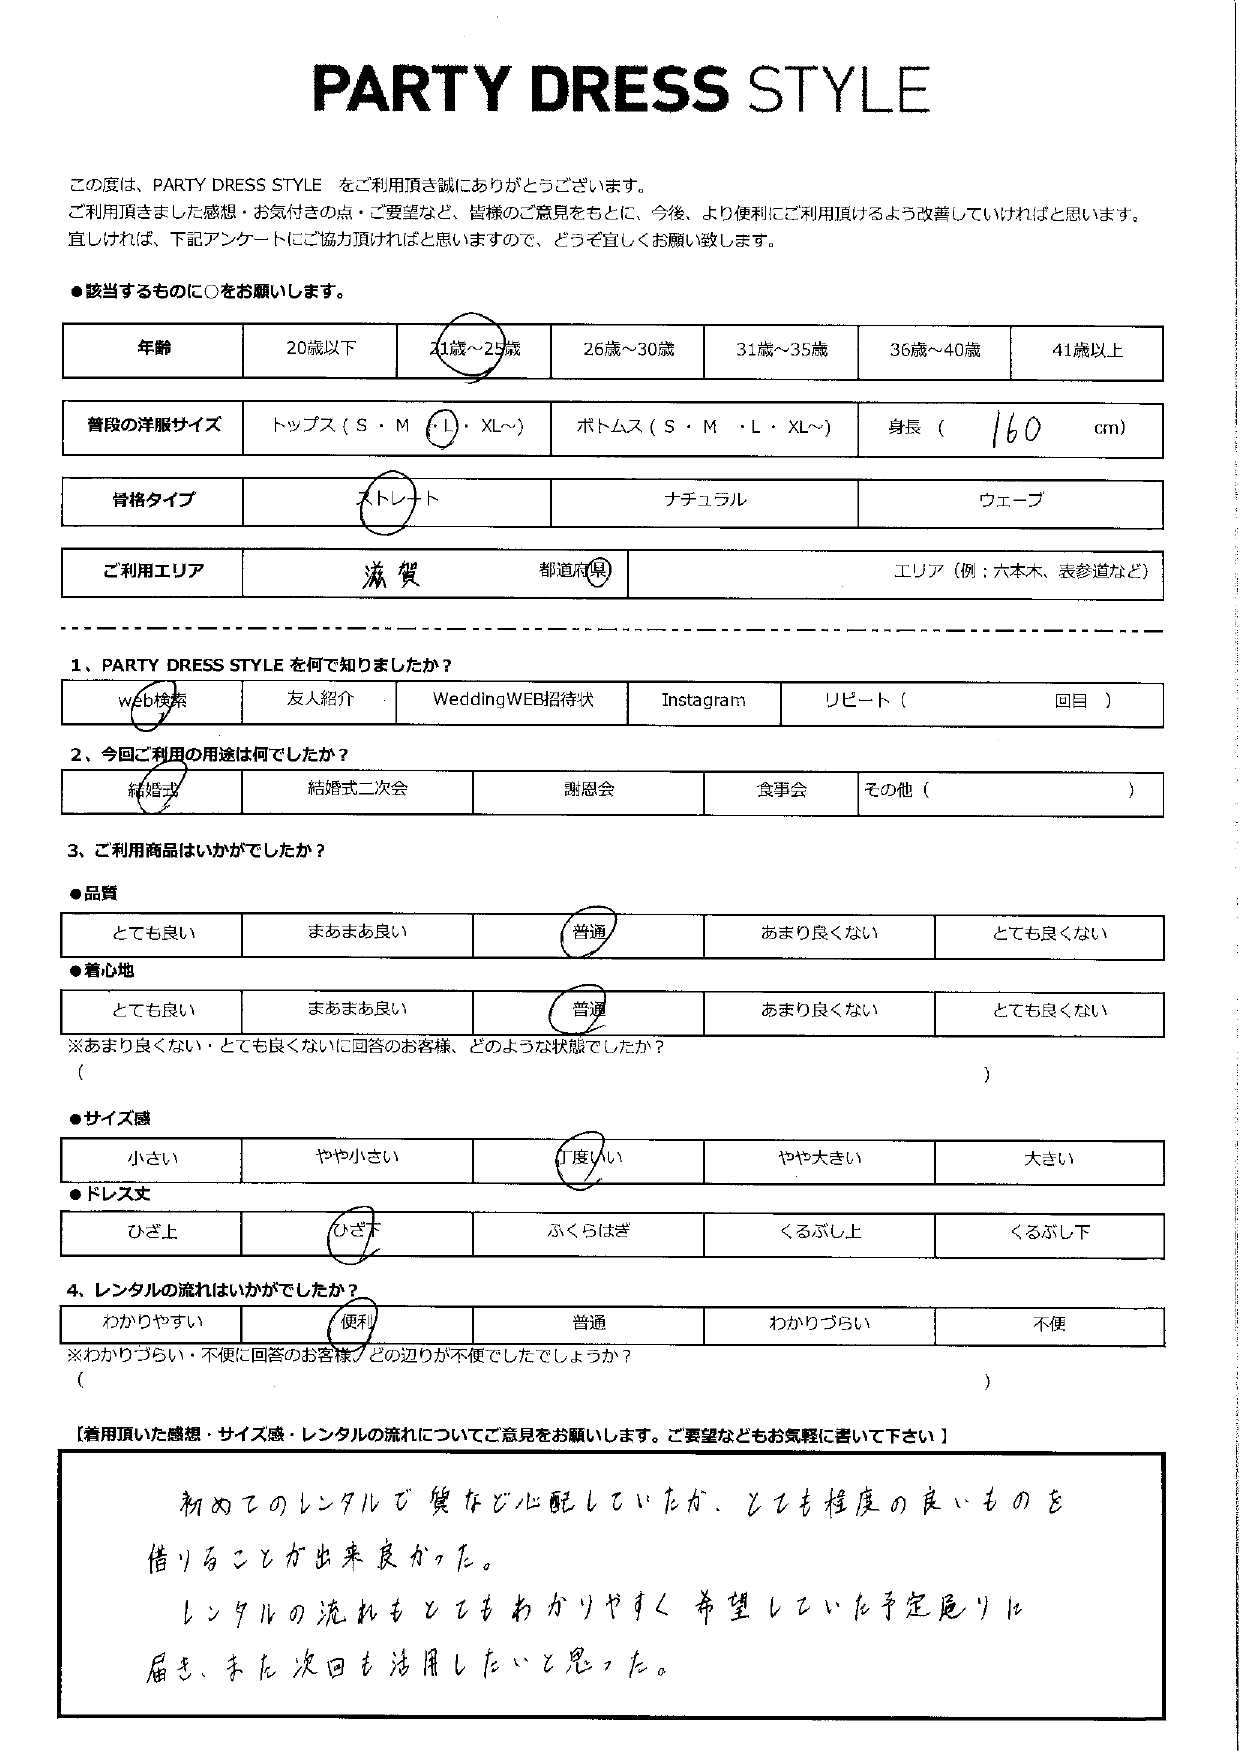 PARTY DRESS STYLE
この度は、PARTY DRESS STYLE をご利用頂き誠にありがとうございます。
ご利用頂きました感想・お気付きの点・ご要望など、皆様のご意見をもとに、今後、より便利にご利用頂けるよう改善していければと思います。
宜しければ、下記アンケートにご協力頂ければと思いますので、どうぞ宜しくお願い致します。
●該当するものに○をお願いします。
年齢 20歳以下 21歳～25歳 26歳～30歳 31歳～35歳 36歳～40歳 41歳以上
普段の洋服サイズ トップス ( S ・ M ・L・ XL～) ボトムス ( S ・ M ・L ・ XL～) 身長 ( 160 cm)
骨格タイプ ストレート ナチュラル ウェーブ
ご利用エリア 滋賀 都道府県 エリア（例；六本木、表参道など）
1、PARTY DRESS STYLE を何で知りましたか？
web検索 友人紹介 WeddingWEB招待状 Instagram リピート（ 回目 ）
2、今回ご利用の用途は何でしたか？
結婚式 結婚式二次会 謝恩会 食事会 その他（ ）
3、ご利用商品はいかがでしたか？
●品質
とても良い まあまあ良い 普通 あまり良くない とても良くない
●着心地
とても良い まあまあ良い 普通 あまり良くない とても良くない
※あまり良くない・とても良くないに回答のお客様、どのような状態でしたか？
（ ）
●サイズ感
小さい やや小さい 丁度いい やや大きい 大きい
●ドレス丈
ひざ上 ひざ下 ふくらはぎ くるぶし上 くるぶし下
4、レンタルの流れはいかがでしたか？
わかりやすい 便利 普通 わかりづらい 不便
※わかりづらい・不便に回答のお客様、どの辺りが不便でしたでしょうか？
（ ）
【着用頂いた感想・サイズ感・レンタルの流れについてご意見をお願いします。ご要望などもお気軽に書いて下さい 】
初めてのレンタルで 質など心配していたが、とても程度の良いものを
借りることが出来良かった。
レンタルの流れもとてもわかりやすく 希望していた予定通りに
届き、また次回も活用したいと思った。